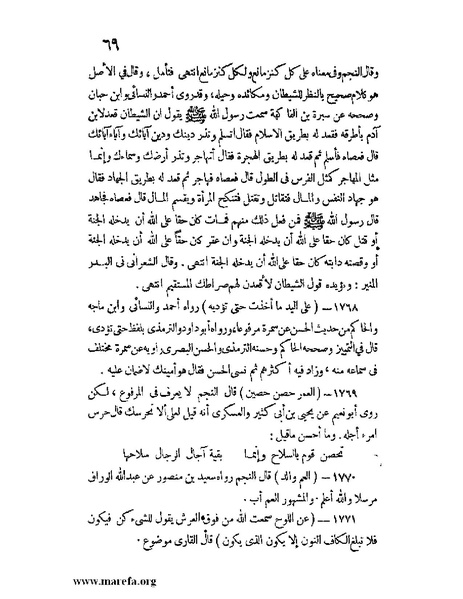 ٦٩
وقال النجم وفى معناه على كل كنز مانع ولكل كنز مانع انتهى فتأمل ، وقال في الأصل
هو كلام صحيح بالنظر للشيطان ومكائده وحيله، وقد روى أحمد والنسائى وابن حبان
وصححه عن سبرة بن الفاكهة سمعت رسول الله ﷺ يقول ان الشيطان قعد لابن
آدم بأطرقه فقعد له بطريق الاسلام فقال اتسلم وتذر دينك ودين آبائك وآباء آبائك
قال فعصاه فأسلم ثم قعد له بطريق الهجرة فقال أتهاجر وتذر أرضك وسماءك وإنما
مثل المهاجر كمثل الفرس فى الطول قال فعصاه فهاجر ثم قعد له بطريق الجهاد فقال
هو جهاد النفس والمال فتقاتل وتقتل فتنكح المرأة ويقسم المال قال فعصاه فجاهد
قال رسول الله ﷺ فمن فعل ذلك منهم فمات كان حقا على الله أن يدخله الجنة
أو قتل كان حقا على الله أن يدخله الجنة وان غرق كان حقاً على الله أن يدخله الجنة
أو وقصته دابته كان حقا على الله أن يدخله الجنة انتهى . وقال الشعرانى فى البدر
المنير : ويؤيده قول الشيطان لأقعدن لهم صراطك المستقيم انتهى .
١٧٦٨ – ( على اليد ما أخذت حتى تؤديه ) رواه أحمد والنسائى وابن ماجه
والحاكم من حديث الحسن عن سمرة مرفوعا، ورواه أبو داود والترمذى بلفظ حتى تؤدى،
قال فى التمييز وصححه الحاكم وحسنه الترمذى والحسن البصرى راويه عن سمرة مختلف
فى سماعه منه ، وزاد فيه أكثرهم ثم نسى الحسن فقال هو أمينك لا ضمان عليه .
١٧٦٩ – ( العمر حصن حصين ) قال النجم لا يعرف فى المرفوع ، لكن
روى أبو نعيم عن يحيى بن أبى كثير والعسكرى أنه قيل لعلى ألا نحرسك قال حرس
امرء أجله . وما أحسن ماقيل :
تحصن قوم بالسلاح وإنما بقية آجال الرجال سلاحها
١٧٧٠ – ( العم والد ) قال النجم رواه سعيد بن منصور عن عبدالله الوراق
مرسلا والله أعلم . والمشهور العم أب .
١٧٧١ – ( عن اللوح سمعت الله من فوق العرش يقول للشىء كن فيكون
فلا تبلغ الكاف النون إلا يكون الذى يكون ) قال القارى موضوع .
www.marefa.org